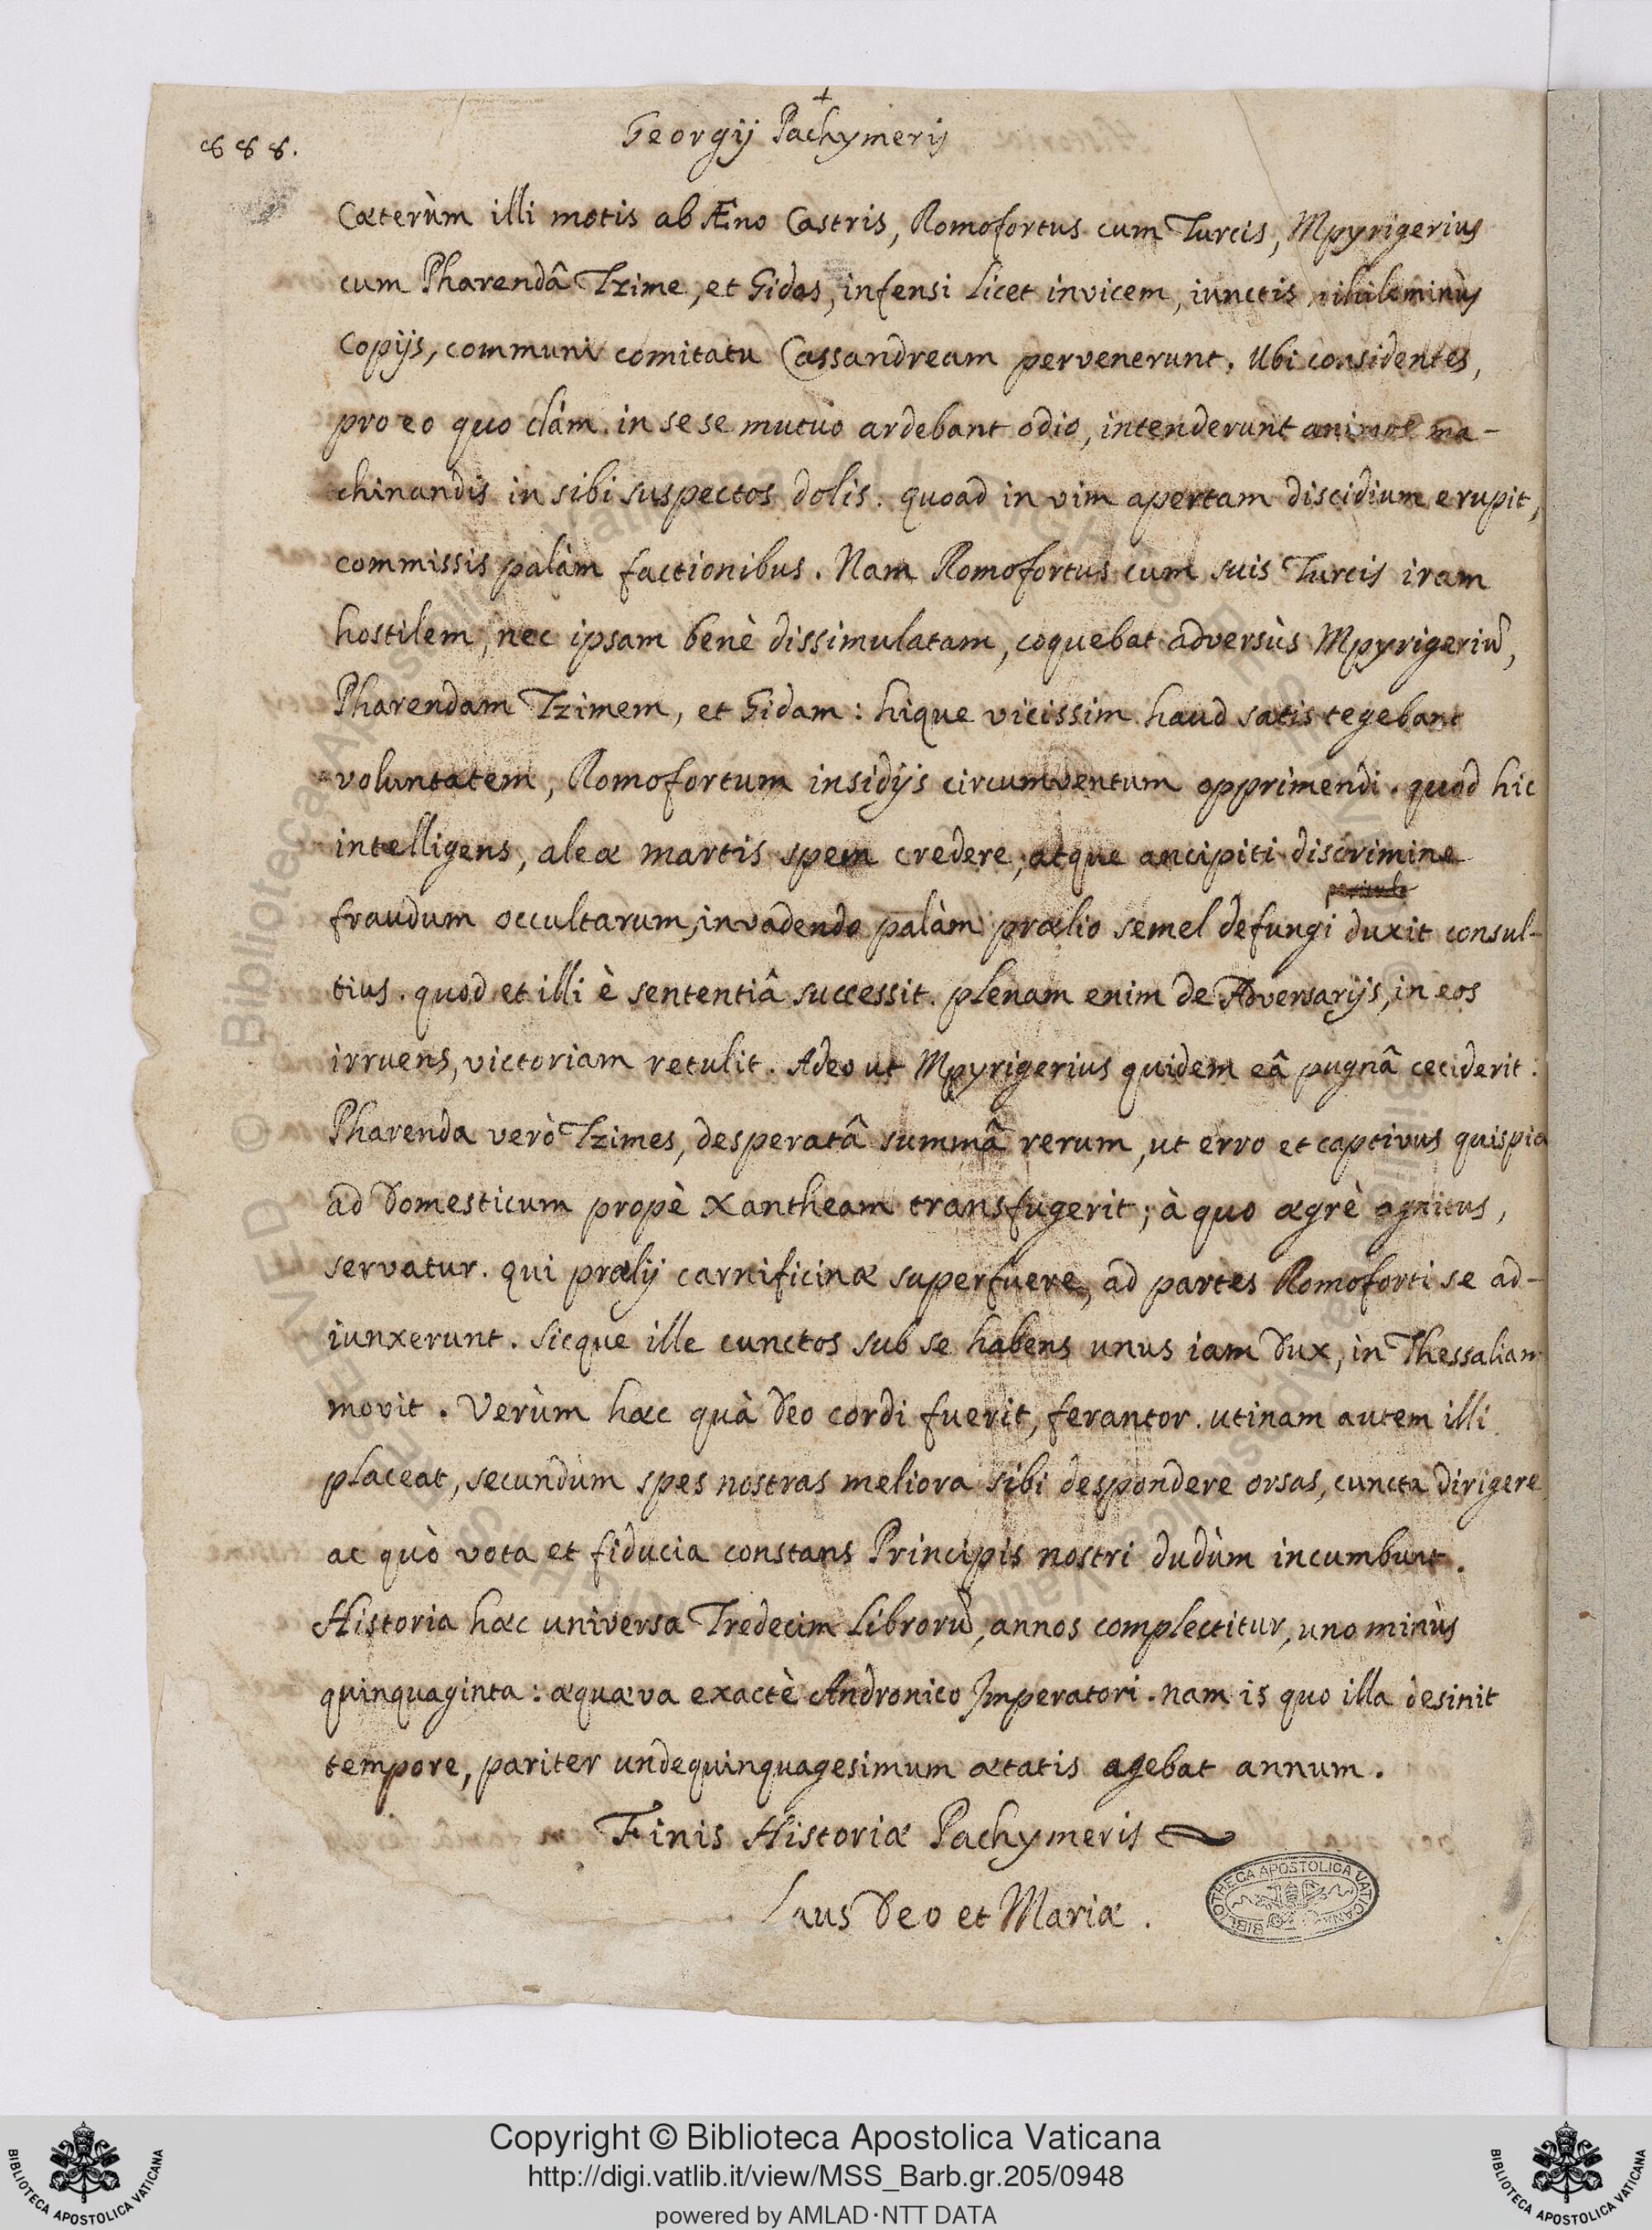 888.
Georgij Pachymerij
Cæterùm illi motis ab Æno Castris, Romofortus cum Turcis, Mpyrigerius
cum Pharendâ Tzime, et Gidas, infensi licet invicem, iunctis nihilominùs
copijs, communi comitatu Cassandream pervenerunt. Ubi considentes,
pro eo quo clàm in sese mutuo ardebant odio, intenderunt animos ma-
chinandis in sibi suspectos dolis. quoad in vim apertam discidium erupit,
commissis palàm factionibus. Nam Romofortus cum suis Turcis iram
hostilem, nec ipsam benè dissimulatam, coquebat adversùs Mpyrigeriũ,
Pharendam Tzimem, et Gidam: hique vicissim haud satis tegebant
voluntatem, Romofortum insidijs circumventum opprimendi. quod hic
intelligens, aleæ martis spem credere, atque ancipiti discrimine
periculo
fraudum occultarum, invadendo palàm prælio semel defungi duxit consul-
tius. quod et illi è sententiâ successit. plenam enim de Adversarijs, in eos
irruens, victoriam retulit. Adeo ut Mpyrigerius quidem eâ pugnâ ceciderit:
Pharenda verò Tzimes, desperatâ summâ rerum, ut erro et captivus quispia
ad Domesticum propè Xantheam transfugerit; à quo ægrè agnitus,
servatur. qui prælij carnificinæ superfuere, ad partes Romoforti se ad-
iunxerunt. Sicque ille cunctos sub se habens unus iam Dux, in Thessaliam
movit. Verùm hæc quà Deo cordi fuerit, ferantor. utinam autem illi
placeat, secundùm spes nostras meliora sibi despondere orsas, cuncta dirigere
ac quò vota et fiducia constans Principis nostri dudùm incumbunt.
Historia hæc universa Tredecim Librorũ, annos complectitur, uno minùs
quinquaginta: æquæva exactè Andronico Imperatori. nam is quo illa desinit
tempore, pariter undequinquagesimum ætatis agebat annum.
Finis Historiæ Pachymeris
Laus Deo et Mariæ.
BIBLIOTHECA APOSTOLICA VATICANA
Copyright © Biblioteca Apostolica Vaticana
http://digi.vatlib.it/view/MSS_Barb.gr.205/0948
powered by AMLAD·NTT DATA
BIBLIOTECA APOSTOLICA VATICANA
BIBLIOTECA APOSTOLICA VATICANA